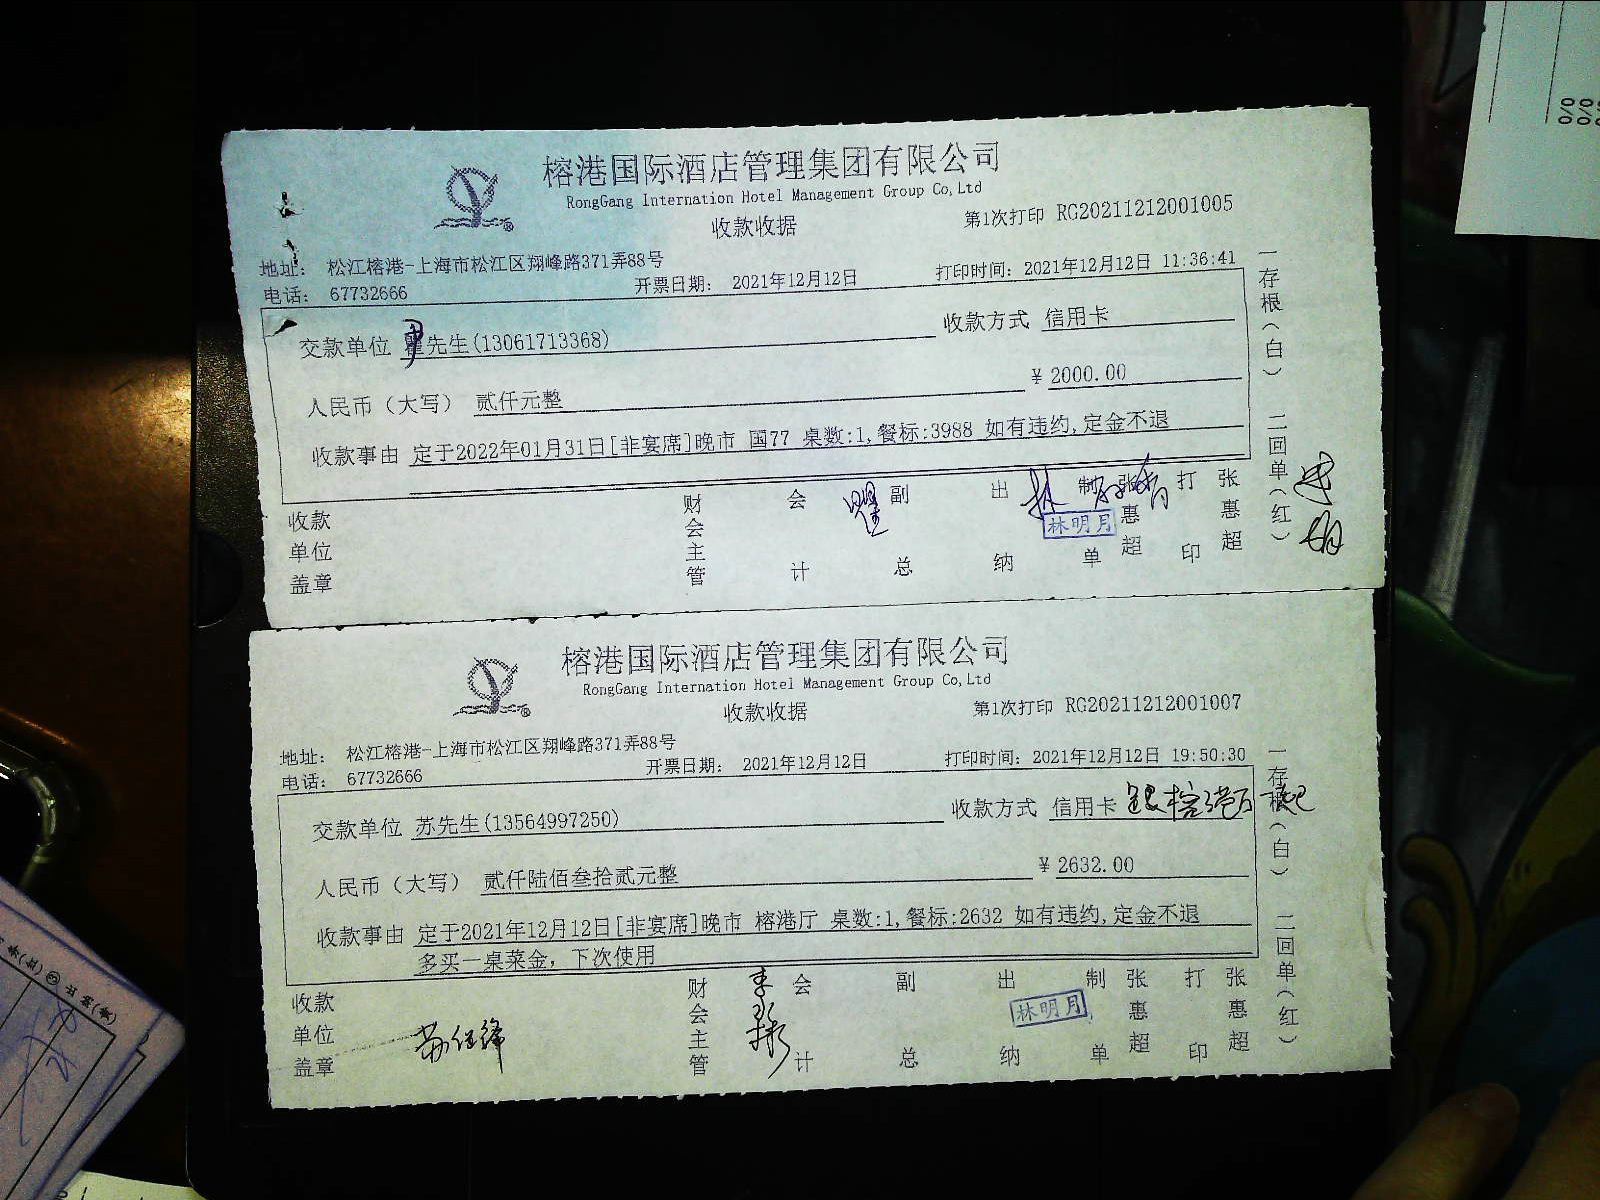 榕港国际酒店管理集团有限公司
RongGang Internation Hotel Management Group Co,Ltd
收款收据
第1次打印 RG20211212001005
地址： 松江榕港-上海市松江区翔峰路371弄88号
电话： 67732666
开票日期： 2021年12月12日
打印时间： 2021年12月12日 11:36:41
交款单位 先生(13061713368)
收款方式 信用卡
人民币（大写） 贰仟元整
¥ 2000.00
收款事由 定于2022年01月31日[非宴席]晚市 国77 桌数:1,餐标:3988 如有违约,定金不退
收款单位盖章
财会主管
会计
副总
出纳
林明月
制单
张惠超
打印
张惠超
一存根（白） 二回单（红）
榕港国际酒店管理集团有限公司
RongGang Internation Hotel Management Group Co,Ltd
收款收据
第1次打印 RG20211212001007
地址： 松江榕港-上海市松江区翔峰路371弄88号
电话： 67732666
开票日期： 2021年12月12日
打印时间： 2021年12月12日 19:50:30
交款单位 苏先生(13564997250)
收款方式 信用卡
人民币（大写） 贰仟陆佰叁拾贰元整
¥ 2632.00
收款事由 定于2021年12月12日[非宴席]晚市 榕港厅 桌数:1,餐标:2632 如有违约,定金不退
多买一桌菜金，下次使用
收款单位盖章
财会主管
会计
副总
出纳
林明月
制单
张惠超
打印
张惠超
一存根（白） 二回单（红）